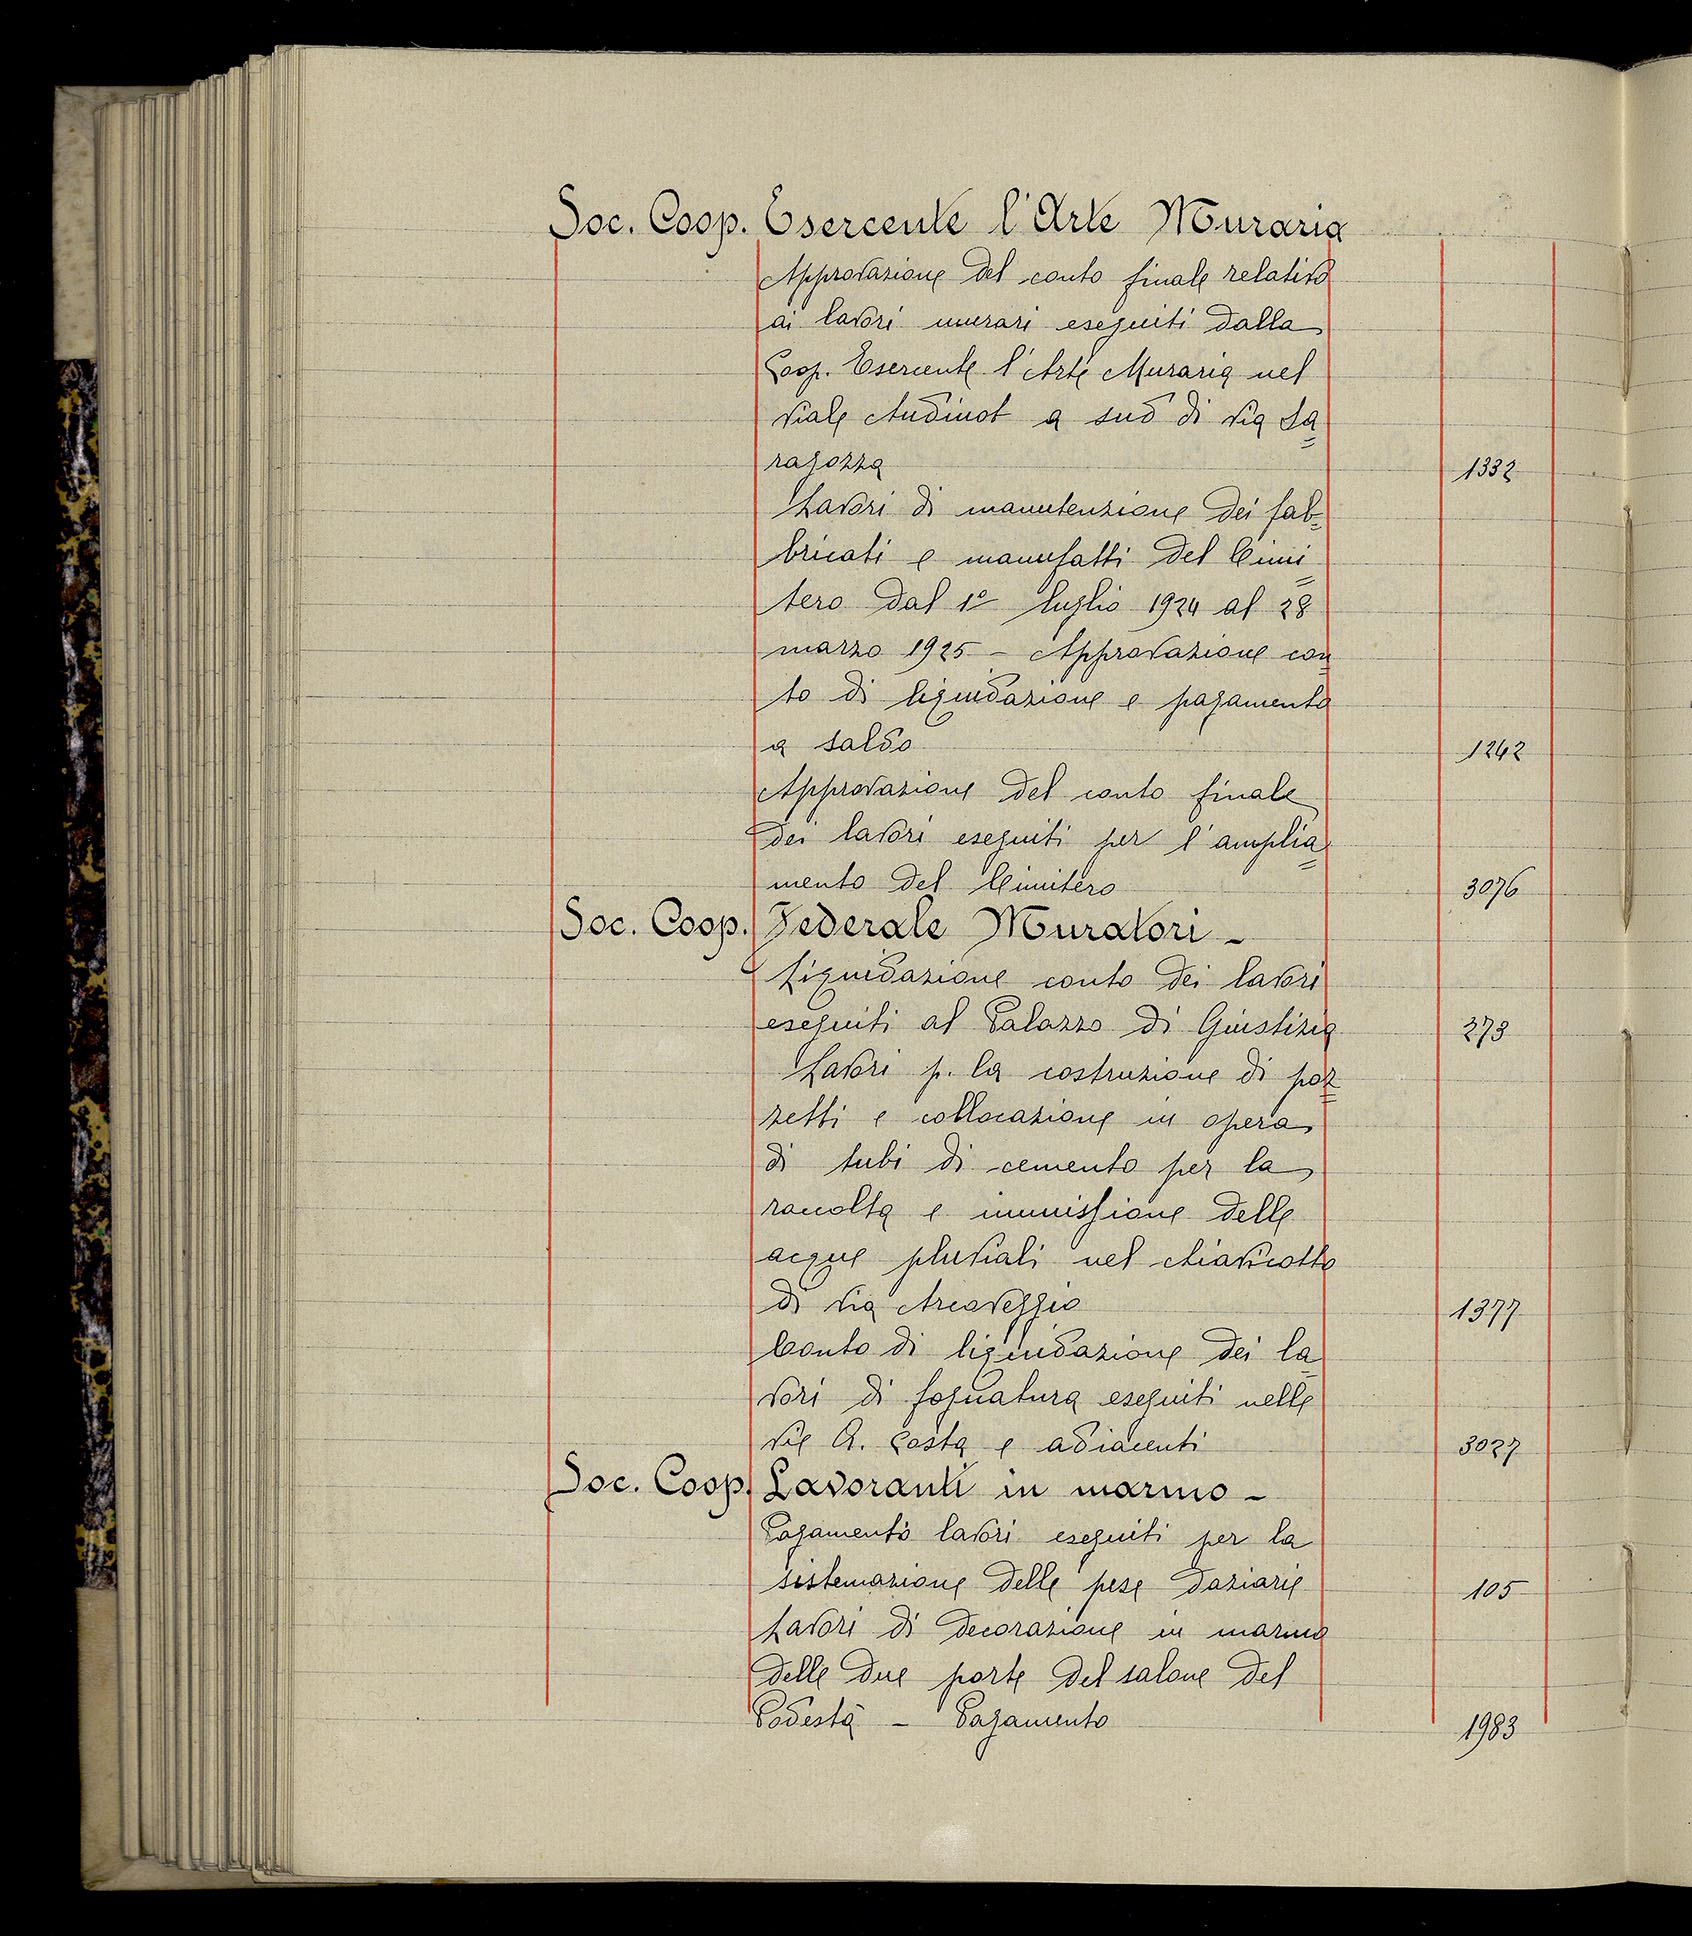 Soc. Coop. Esercente l'Arte Muraria
Approvazione del conto finale relativo
ai lavori murari eseguiti dalla
Coop. Esercente l'Arte Muraria nel
viale Audinot a sud di via Sa=
ragozza 1332
Lavori di manutenzione dei fab=
bricati e manufatti del Cimi=
tero dal 1º luglio 1924 al 28
marzo 1925 - Approvazione con=
to di liquidazione e pagamento
a saldo 1242
Approvazione del conto finale
dei lavori eseguiti per l'amplia=
mento del Cimitero 3076
Soc. Coop. Federale Muratori -
Liquidazione conto dei lavori
eseguiti al Palazzo di Giustizia 273
Lavori p. la costruzione di poz=
zetti e collocazione in opera
di tubi di cemento per la
raccolta e immissione delle
acque pluviali nel chiavicotto
di via Arcoveggio 1377
Conto di liquidazione dei la=
vori di fognatura eseguiti nelle
vie A. Costa e adiacenti 3027
Soc. Coop. Lavoranti in marmo -
Pagamento lavori eseguiti per la
sistemazione delle pese daziarie 105
Lavori di decorazione in marmo
delle due porte del salone del
Podestà - Pagamento 1983